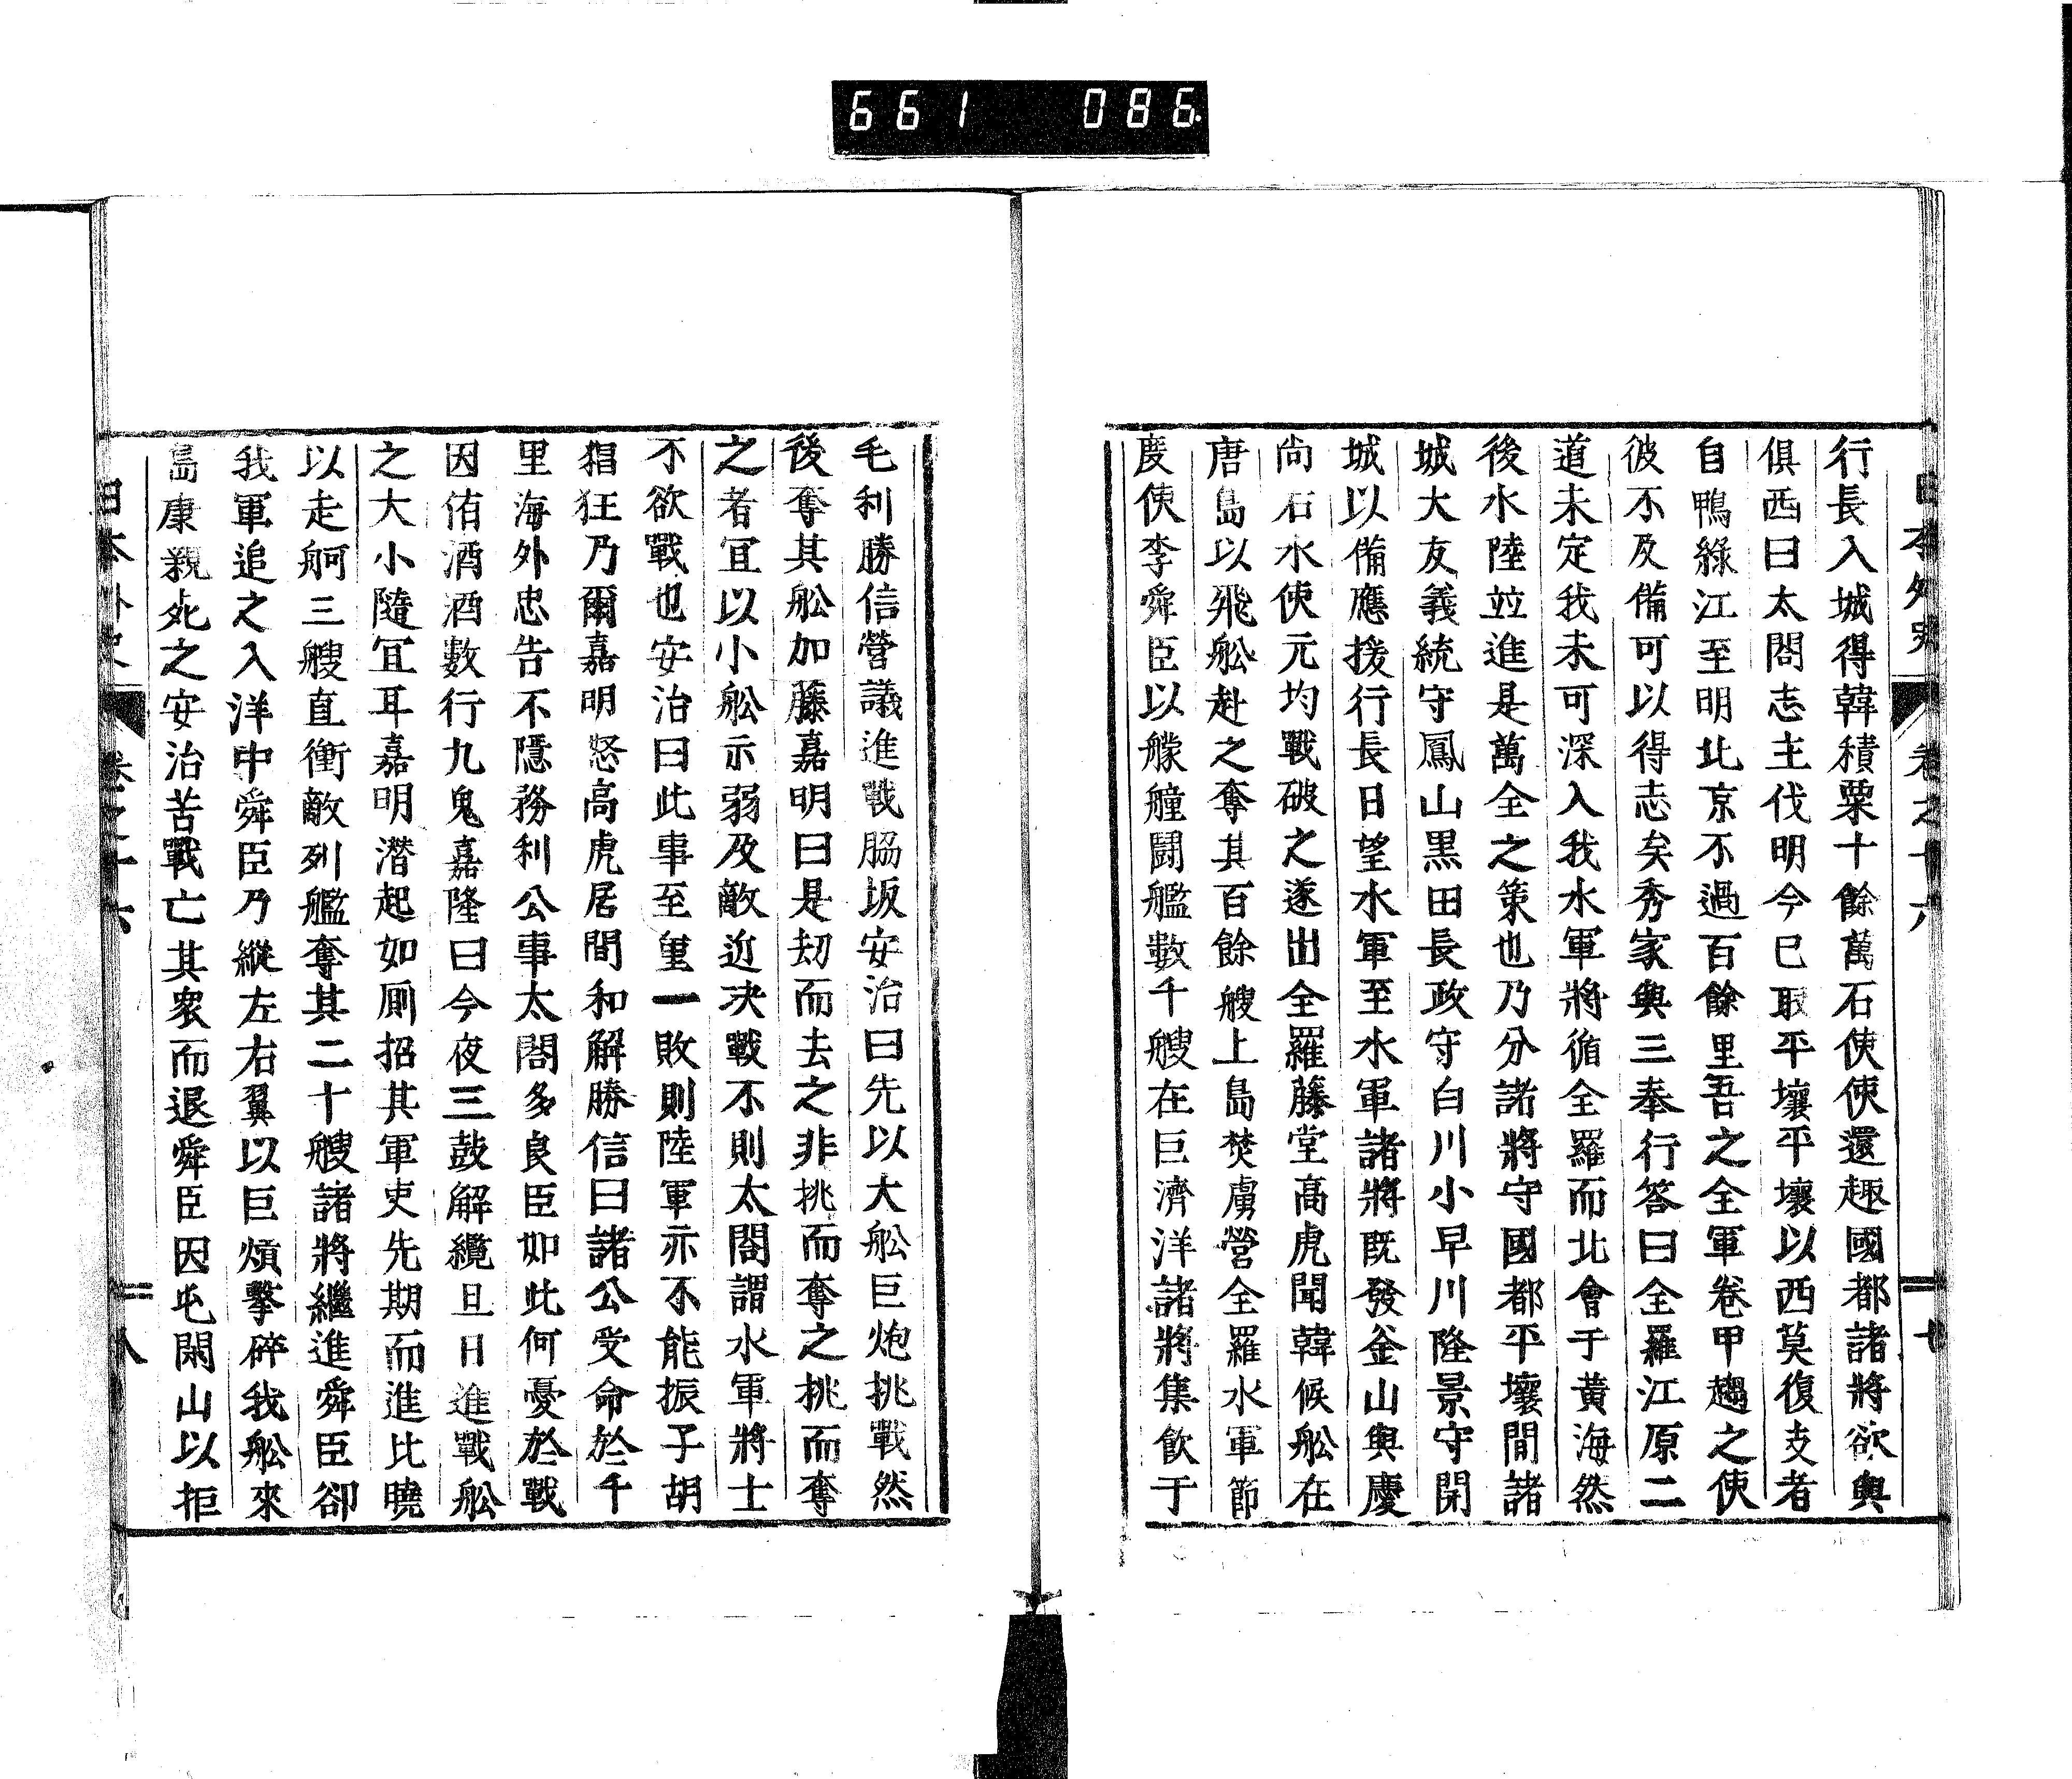 661 086
日本外史 卷之十六 十七
行長入城得韓積粟十餘萬石使使還趣國都諸將欲與
俱西曰太閤志主伐明今已取平壤平壤以西莫復支者
自鴨綠江至明北京不過百餘里吾之全軍卷甲趨之使
彼不及備可以得志矣秀家與三奉行答曰全羅江原二
道未定我未可深入我水軍將循全羅而北會于黃海然
後水陸竝進是萬全之策也乃分諸將守國都平壤間諸
城大友義統守鳳山黑田長政守白川小早川隆景守開
城以備應援行長日望水軍至水軍諸將既發釜山與慶
尚右水使元均戰破之遂出全羅藤堂高虎聞韓候舩在
唐島以飛舩赴之奪其百餘艘上島焚虜營全羅水軍節
度使李舜臣以艨艟鬪艦數千艘在巨濟洋諸將集飲于
毛利勝信營議進戰脇坂安治曰先以大舩巨炮挑戰然
後奪其舩加藤嘉明曰是刼而去之非挑而奪之挑而奪
之者宜以小舩示弱及敵近決戰不則太閤謂水軍將士
不欲戰也安治曰此事至重一敗則陸軍亦不能振子胡
猖狂乃爾嘉明怒高虎居間和解勝信曰諸公受命於千
里海外忠告不隱務利公事太閤多良臣如此何憂於戰
因侑酒酒數行九鬼嘉隆曰今夜三鼓解纜旦日進戰舩
之大小隨宜耳嘉明潛起如厠招其軍吏先期而進比曉
以走舸三艘直衝敵列艦奪其二十艘諸將繼進舜臣卻
我軍追之入洋中舜臣乃縱左右翼以巨煩擊碎我舩來
島康親死之安治苦戰亡其衆而退舜臣因屯閑山以拒
日本外史 卷之十六 十八